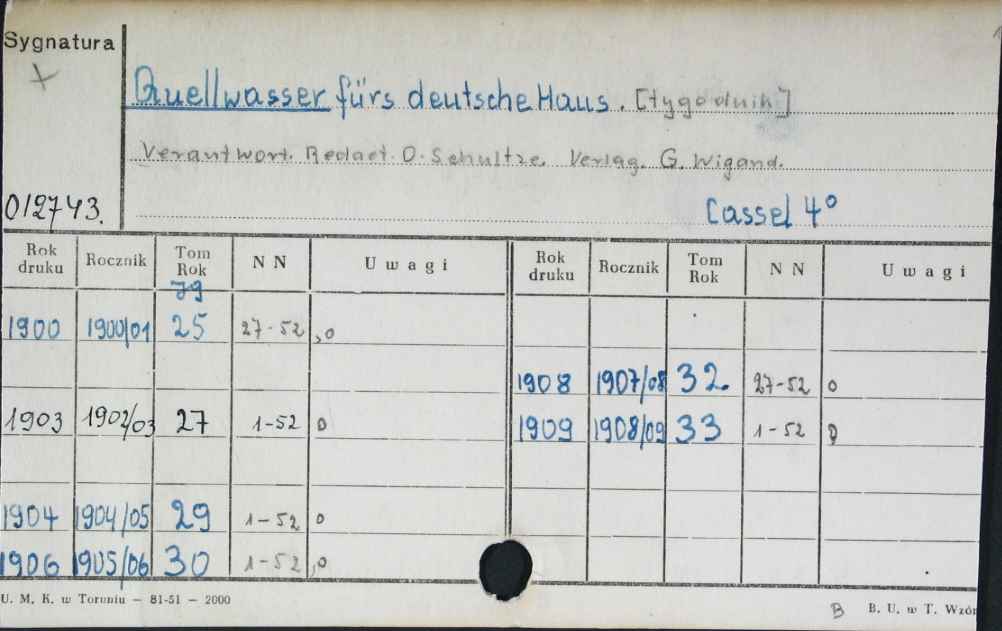 Sygnatura
Quellwasser fürs deutsche Haus. [tygodnik]
Verantwort. Redact. O. Schultze. Verlag. G. Wigand.
012743.
Cassel 4°
Rok druku Rocznik Tom Rok N N Uwagi Rok druku Rocznik Tom Rok N N Uwagi
Jg
1900 1900/01 25 27-52 ,o
1908 1907/08 32. 27-52 o
1903 1902/03 27 1-52 o
1909 1908/09 33 1-52 o
1904 1904/05 29 1-52 o
1906 1905/06 30 1-52 ,o
U. M. K. w Toruniu - 81-51 - 2000
B B. U. w T. Wzór